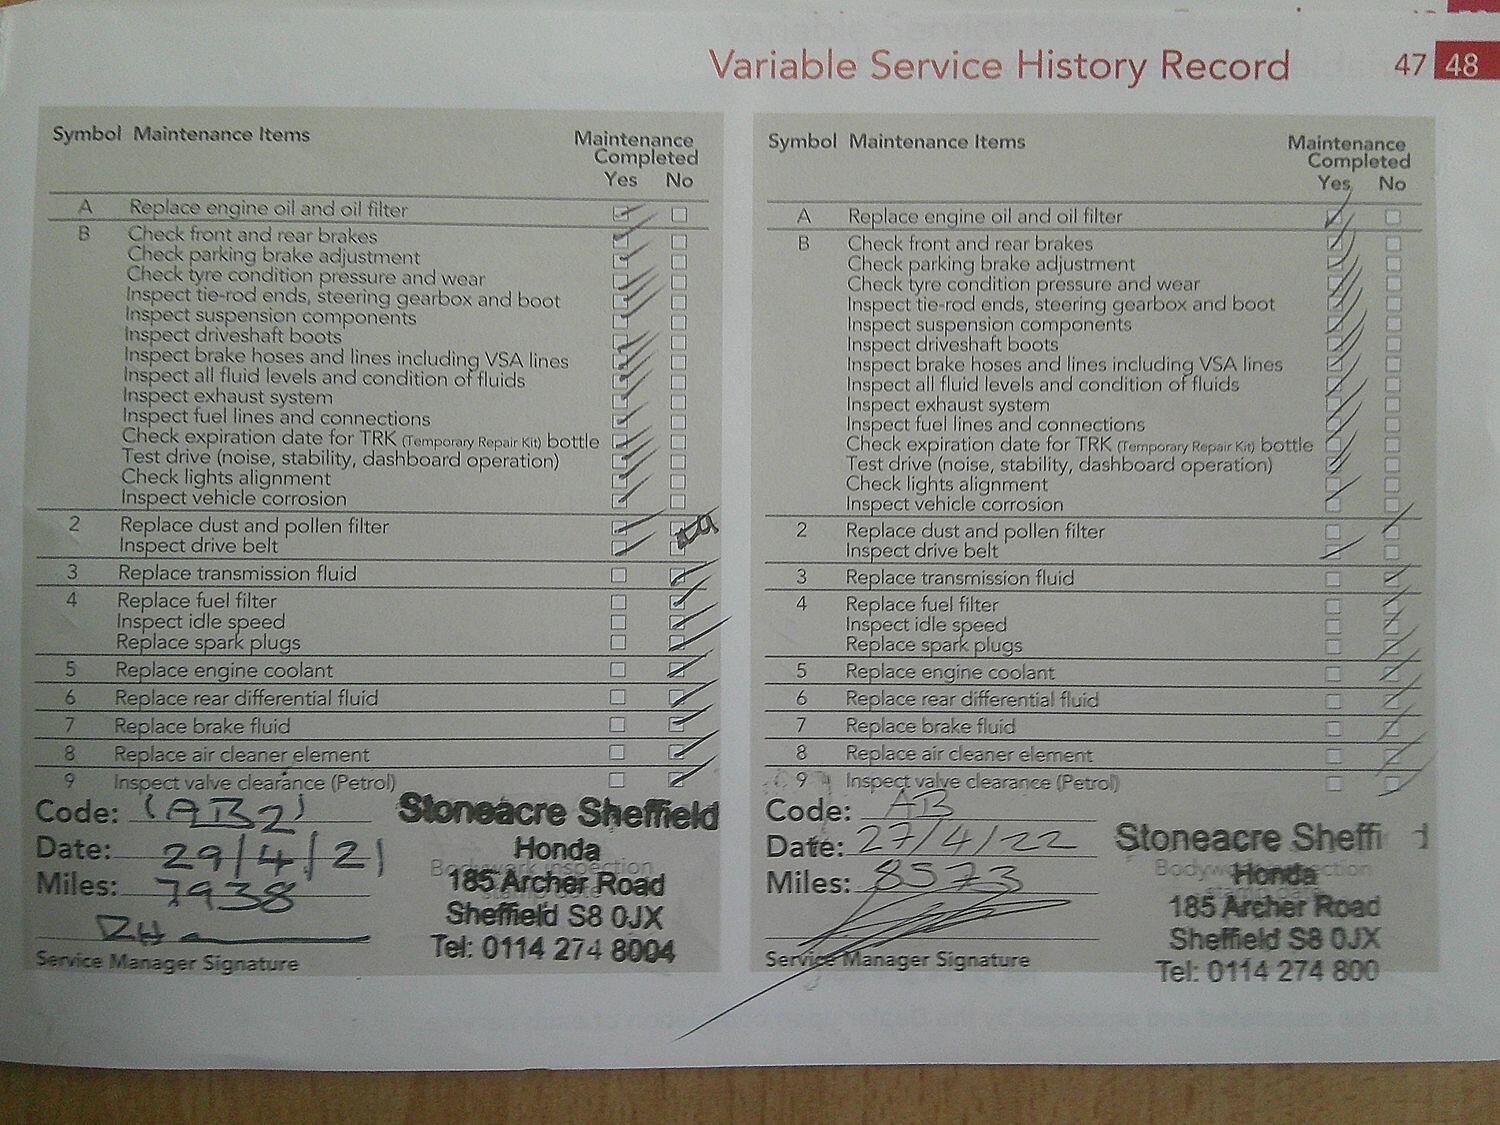 Variable Service History Record 47 48
Symbol Maintenance Items Maintenance
Completed
Yes No
A Replace engine oil and oil filter
B Check front and rear brakes
Check parking brake adjustment
Check tyre condition pressure and wear
Inspect tie-rod ends, steering gearbox and boot
Inspect suspension components
Inspect driveshaft boots
Inspect brake hoses and lines including VSA lines
Inspect all fluid levels and condition of fluids
Inspect exhaust system
Inspect fuel lines and connections
Check expiration date for TRK (Temporary Repair Kit) bottle
Test drive (noise, stability, dashboard operation)
Check lights alignment
Inspect vehicle corrosion
2 Replace dust and pollen filter
Inspect drive belt
3 Replace transmission fluid
4 Replace fuel filter
Inspect idle speed
Replace spark plugs
5 Replace engine coolant
6 Replace rear differential fluid
7 Replace brake fluid
8 Replace air cleaner element
9 Inspect valve clearance (Petrol)
Code: (AB2)
Date: 29/4/21
Miles: 7938
Service Manager Signature
Stoneacre Sheffield
Honda
Bodywork inspection
185 Archer Road
Sheffield S8 0JX
Tel: 0114 274 8004
Symbol Maintenance Items Maintenance
Completed
Yes No
A Replace engine oil and oil filter
B Check front and rear brakes
Check parking brake adjustment
Check tyre condition pressure and wear
Inspect tie-rod ends, steering gearbox and boot
Inspect suspension components
Inspect driveshaft boots
Inspect brake hoses and lines including VSA lines
Inspect all fluid levels and condition of fluids
Inspect exhaust system
Inspect fuel lines and connections
Check expiration date for TRK (Temporary Repair Kit) bottle
Test drive (noise, stability, dashboard operation)
Check lights alignment
Inspect vehicle corrosion
2 Replace dust and pollen filter
Inspect drive belt
3 Replace transmission fluid
4 Replace fuel filter
Inspect idle speed
Replace spark plugs
5 Replace engine coolant
6 Replace rear differential fluid
7 Replace brake fluid
8 Replace air cleaner element
9 Inspect valve clearance (Petrol)
Code: AB
Date: 27/4/22
Miles: 8573
Service Manager Signature
Stoneacre Sheffi d
Bodywork inspection
Honda
185 Archer Road
Sheffield S8 0JX
Tel: 0114 274 800